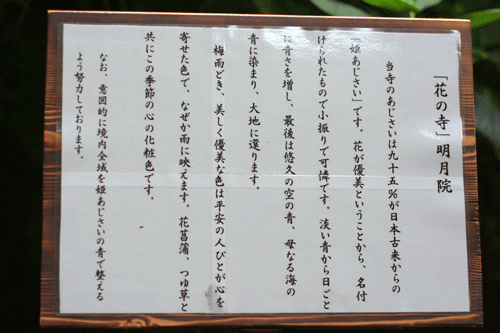 「花の寺」明月院
当寺のあじさいは九十五％が日本古来からの
「姫あじさい」です。花が優美ということから、名付
けられたもので小振りで可憐です。淡い青から日ごと
に青さを増し、最後は悠久の空の青、母なる海の
青に染まり、大地に還ります。
梅雨どき、美しく優美な色は平安の人びとが心を
寄せた色で、なぜか雨に映えます。花菖蒲、つゆ草と
共にこの季節の心の化粧色です。
なお、意図的に境内全域を姫あじさいの青で整える
よう努力しております。